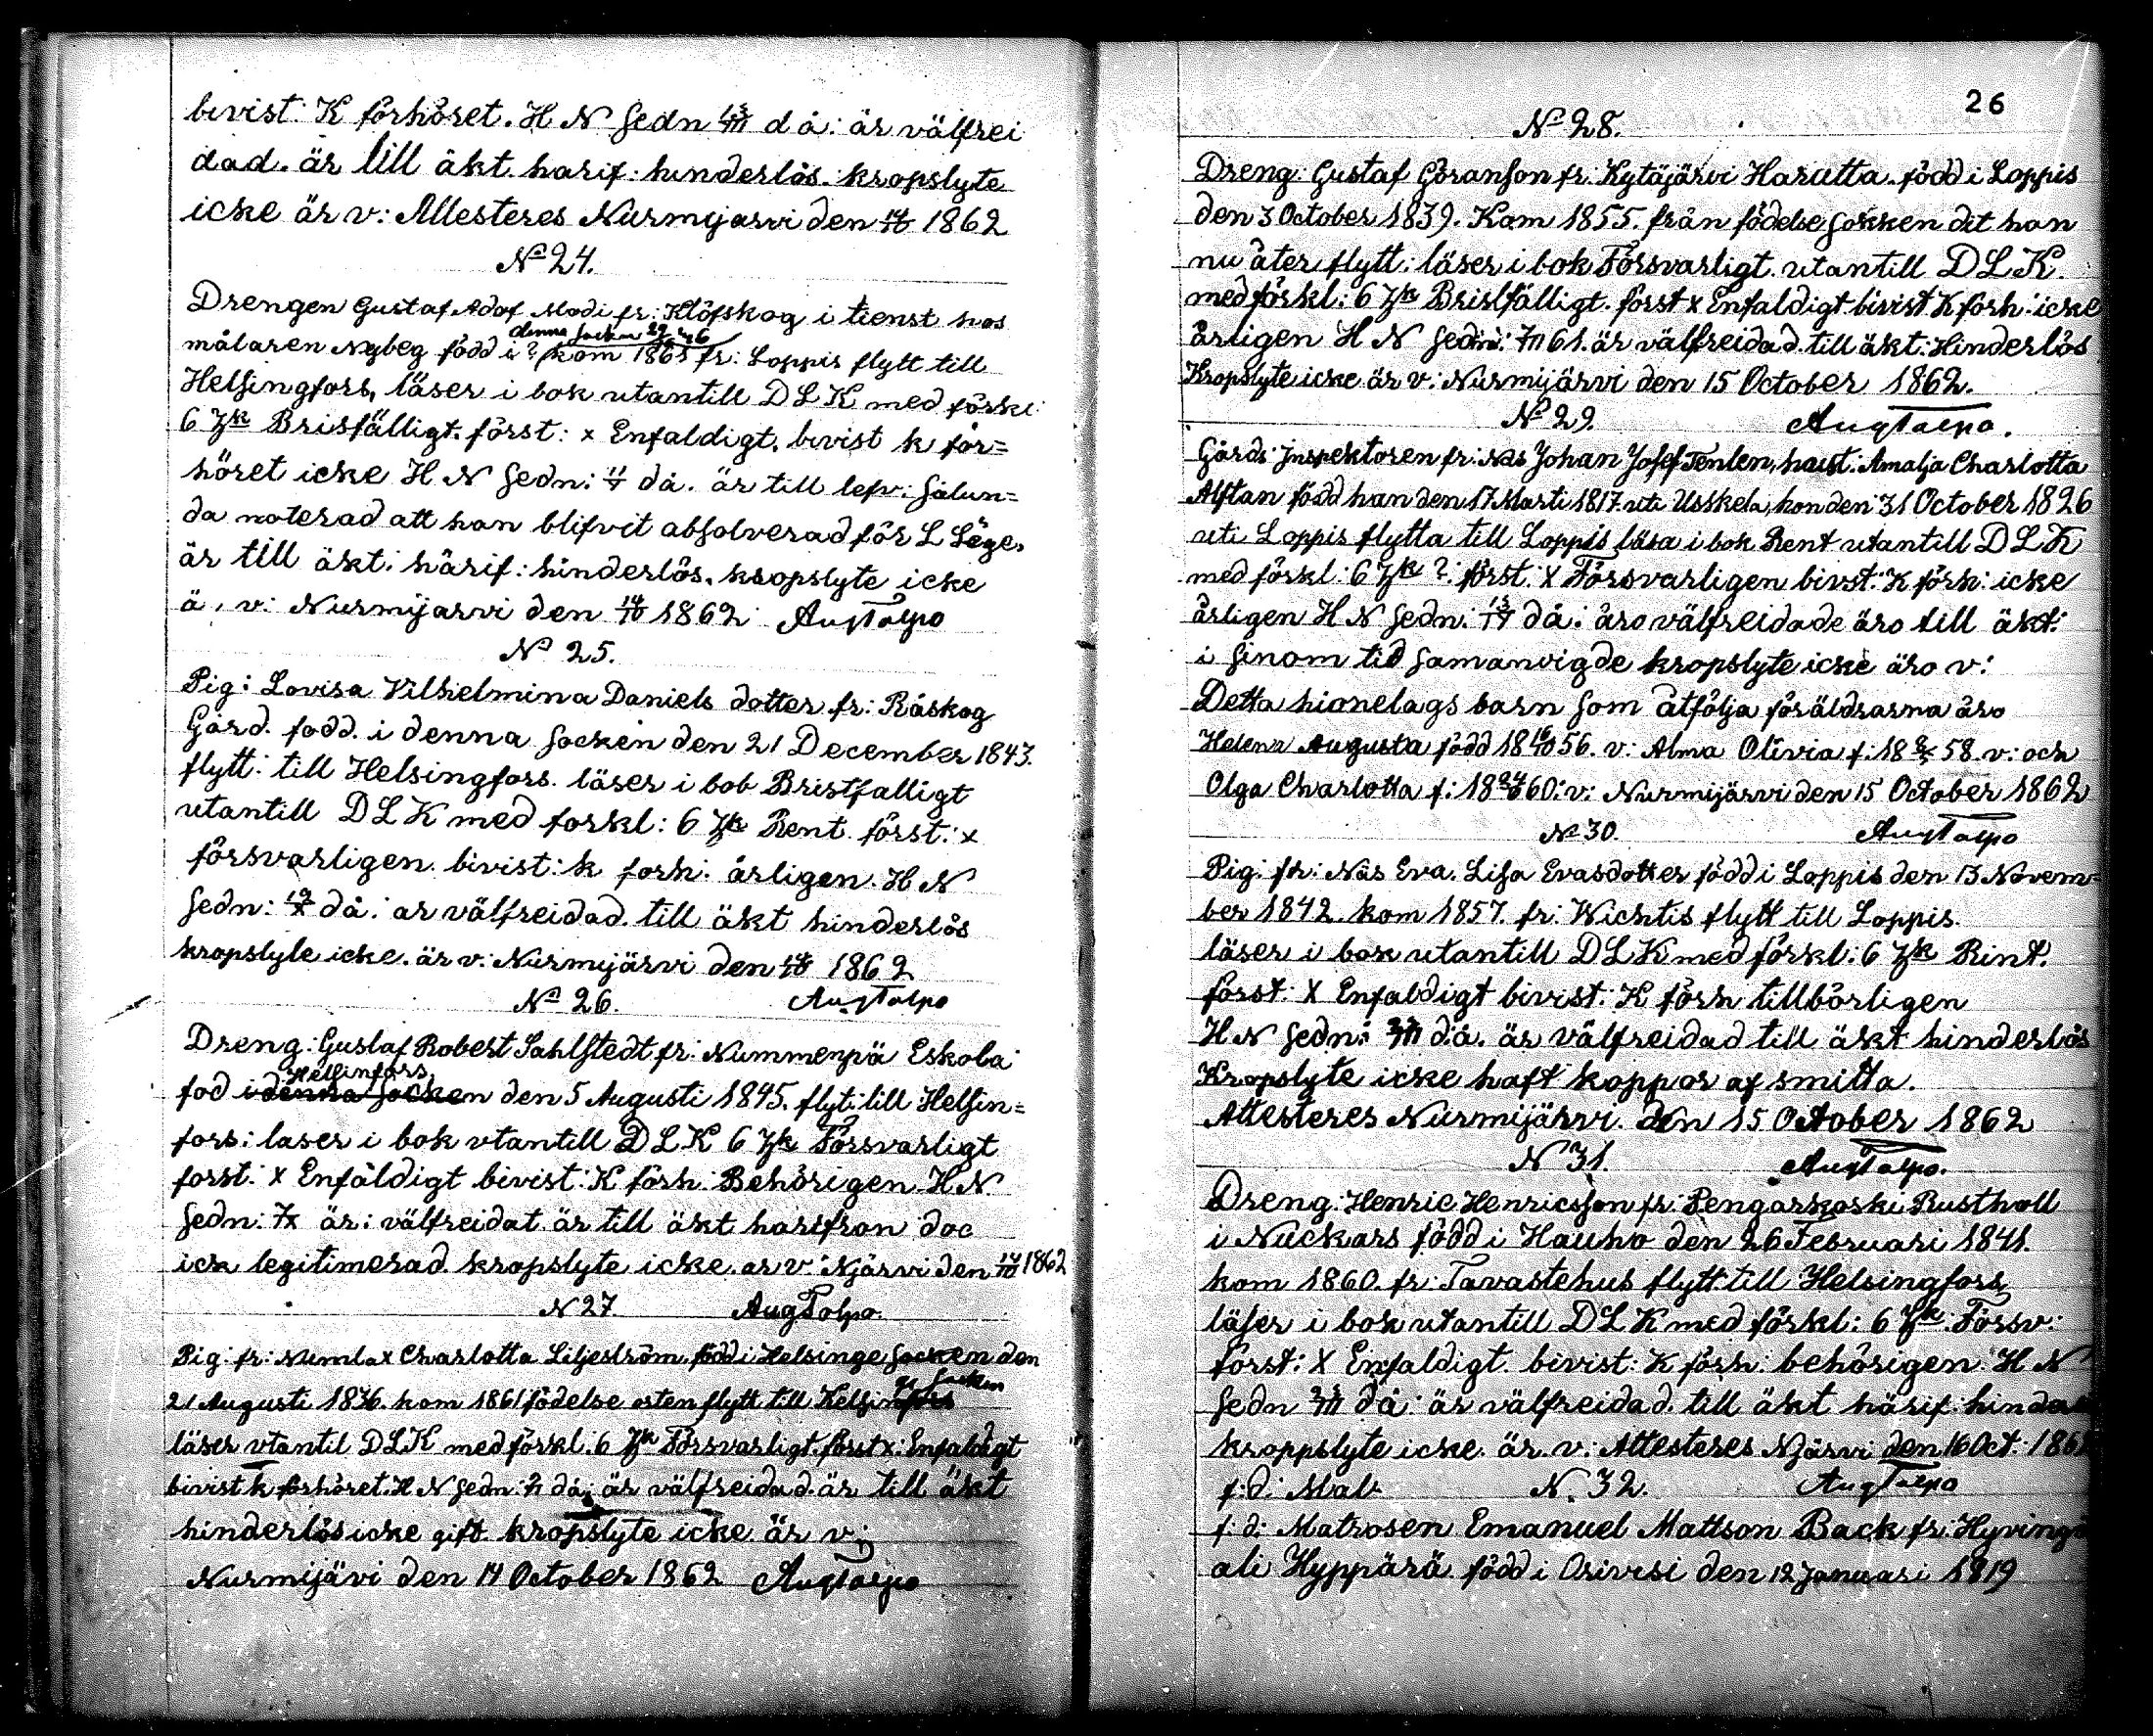 bivist: K förhöret. H N sedn 13/VII d å: är välfrei
dad. är till äkt. harif: hinderlös. kropslyte
icke är v: Attesteres Nurmijarvi den 14/10 1862
No 24.
Drengen Gustaf Adof Modi fr: Klöfskog i tienst hos
denna socken
målaren Nybeg född i ? kom 1861 fr: Loppis flytt till
Helsingfors, läser i bok utantill D L K med förkl:
6 Zk Brisfälligt. först: x Enfaldigt. bivist k för=
höret icke H N sedn: då. är till lefv: sålun=
da noterad att han blifvit absolverad för L Läge,
är till äkt: härif: hinderlös, kropslyte icke
ä, v: Nurmijarvi den 14/10 1862 Aug Talpo
No 25.
Pig: Lovisa Vilhelmina Daniels dotter fr: Råskog
Gård. fodd. i denna Socken den 21 December 1843.
flytt: till Helsingfors. läser i bob Bristfalligt
utantill D L K med forkl: 6 Zk Rent. först: x
försvarligen. bivist: k forh: årligen. H N
sedn: 19/X då: ar välfreidad. till äkt hinderlös
kropslyte icke. är v. Nurmijärvi den 14/10 1862
No 26. Aug Talpo
Dreng: Gustaf Robert Sahlstedt fr: Nummenpä Eskola
Helsinfors
fod i denna Socken den 5 Augusti 1845. flyt: till Helsin=
fors: laser i bok utantill D L K 6 Zk Försvarligt
forst: X Enfäldigt bivist: K förh: Behörigen. H N
sedn: 7/X är: välfreidat är till äkt harifron doc
ick legitimerad. kropslyte icke. ar v: Njärvi den 14/10 1862
N 27. Aug Talpo.
Pig: fr: Numlax Charlotta Liljeström född i Helsinge Socken den
ge Socken
21 Augusti 1836. kom 1861 födelse orten flytt till Helsinfors
läser utantil D L K med förkl: 6 Zk Försvarligt. först x: Enfaldigt
bivist k förhöret. H N sedn: då: är välfreidad. är till äkt
hinderlös icke gift. kropslyte icke. är v:
Nurmijävi den 14 October 1862 Aug Talpo
26
No 28.
Dreng: Gustaf Göranson fr: Kytäjärvi Harutta. född i Loppis
den 3 October 1839. Kom 1855. från födelse Sokken dit han
nu åter flytt: läser i bok Försvarligt. utantill D L K.
med förkl: 6 Zk Bristfälligt. först x Enfaldigt bivist K forh: icke
årligen H N sedn: 7/VII 61. är välfreidad. till äkt: Hinderlös
Kropslyte icke är v: Nurmijärvi den 15 October 1862.
No 29. Aug Talpo.
Gårds Inspektoren fr: Näs Johan Josef Tenlen, hust: Amalja Charlotta
Alftan född han den 17 Marti 1817. uti Usskela, hon den 31 October 1826
uti Loppis flytta till Loppis läsa i bok Rent utantill D L K
med förkl: 6 Zk ?: först: X Försvarligen bivst: K förh: icke
årligen H N sedn: 13/IV då: äro välfreidade äro till äkt:
i sinom tid samanvigde kropslyte icke äro v:
Detta hionelags barn som åtfölja föräldrarna äro
Helena Augusta född 18 56. v: Alma Olivia f: 18 58. v: och
Olga Charlotta f: 18 60: v: Nurmijärvi den 15 October 1862
No 30. Aug Talpo
Pig: fr: Näs Eva. Lisa Evasdotter född i Loppis den 13 Novem=
ber 1842. kom 1857. fr: Wichtis flytt till Loppis.
läser i bok utantill D L K med förkl: 6 Zk Rint.
först: X Enfaldigt bivist: K förh tillbörligen
H N sedn: d: å. är välfreidad till äkt hinderlös
Kropslyte icke haft koppor af smitta.
Attesteres Nurmijärvi. den 15 October 1862
N 31. Aug Talpo.
Dreng: Henric Henricsson fr: Pengarkoski Rusthåll
i Nuckars född i Hauho den 26 Februari 1841.
kom 1860. fr: Tavastehus flytt till Helsingfors
läser i bok utantill D L K med förkl: 6 Zk: Försv:
först: X Enfaldigt. bivist: K förh: behörigen: H N
sedn då: är välfreidad. till äkt härif: hinder
kroppslyte icke. är. v: Attesteres Njärvi den 16 Oct: 186
f: d: Mat N. 32. Aug Talpo
f: d: Matrosen Emanuel Mattson Back fr: Hyvinge
ali Hyppärä född i Orivesi den 12 Januari 1819